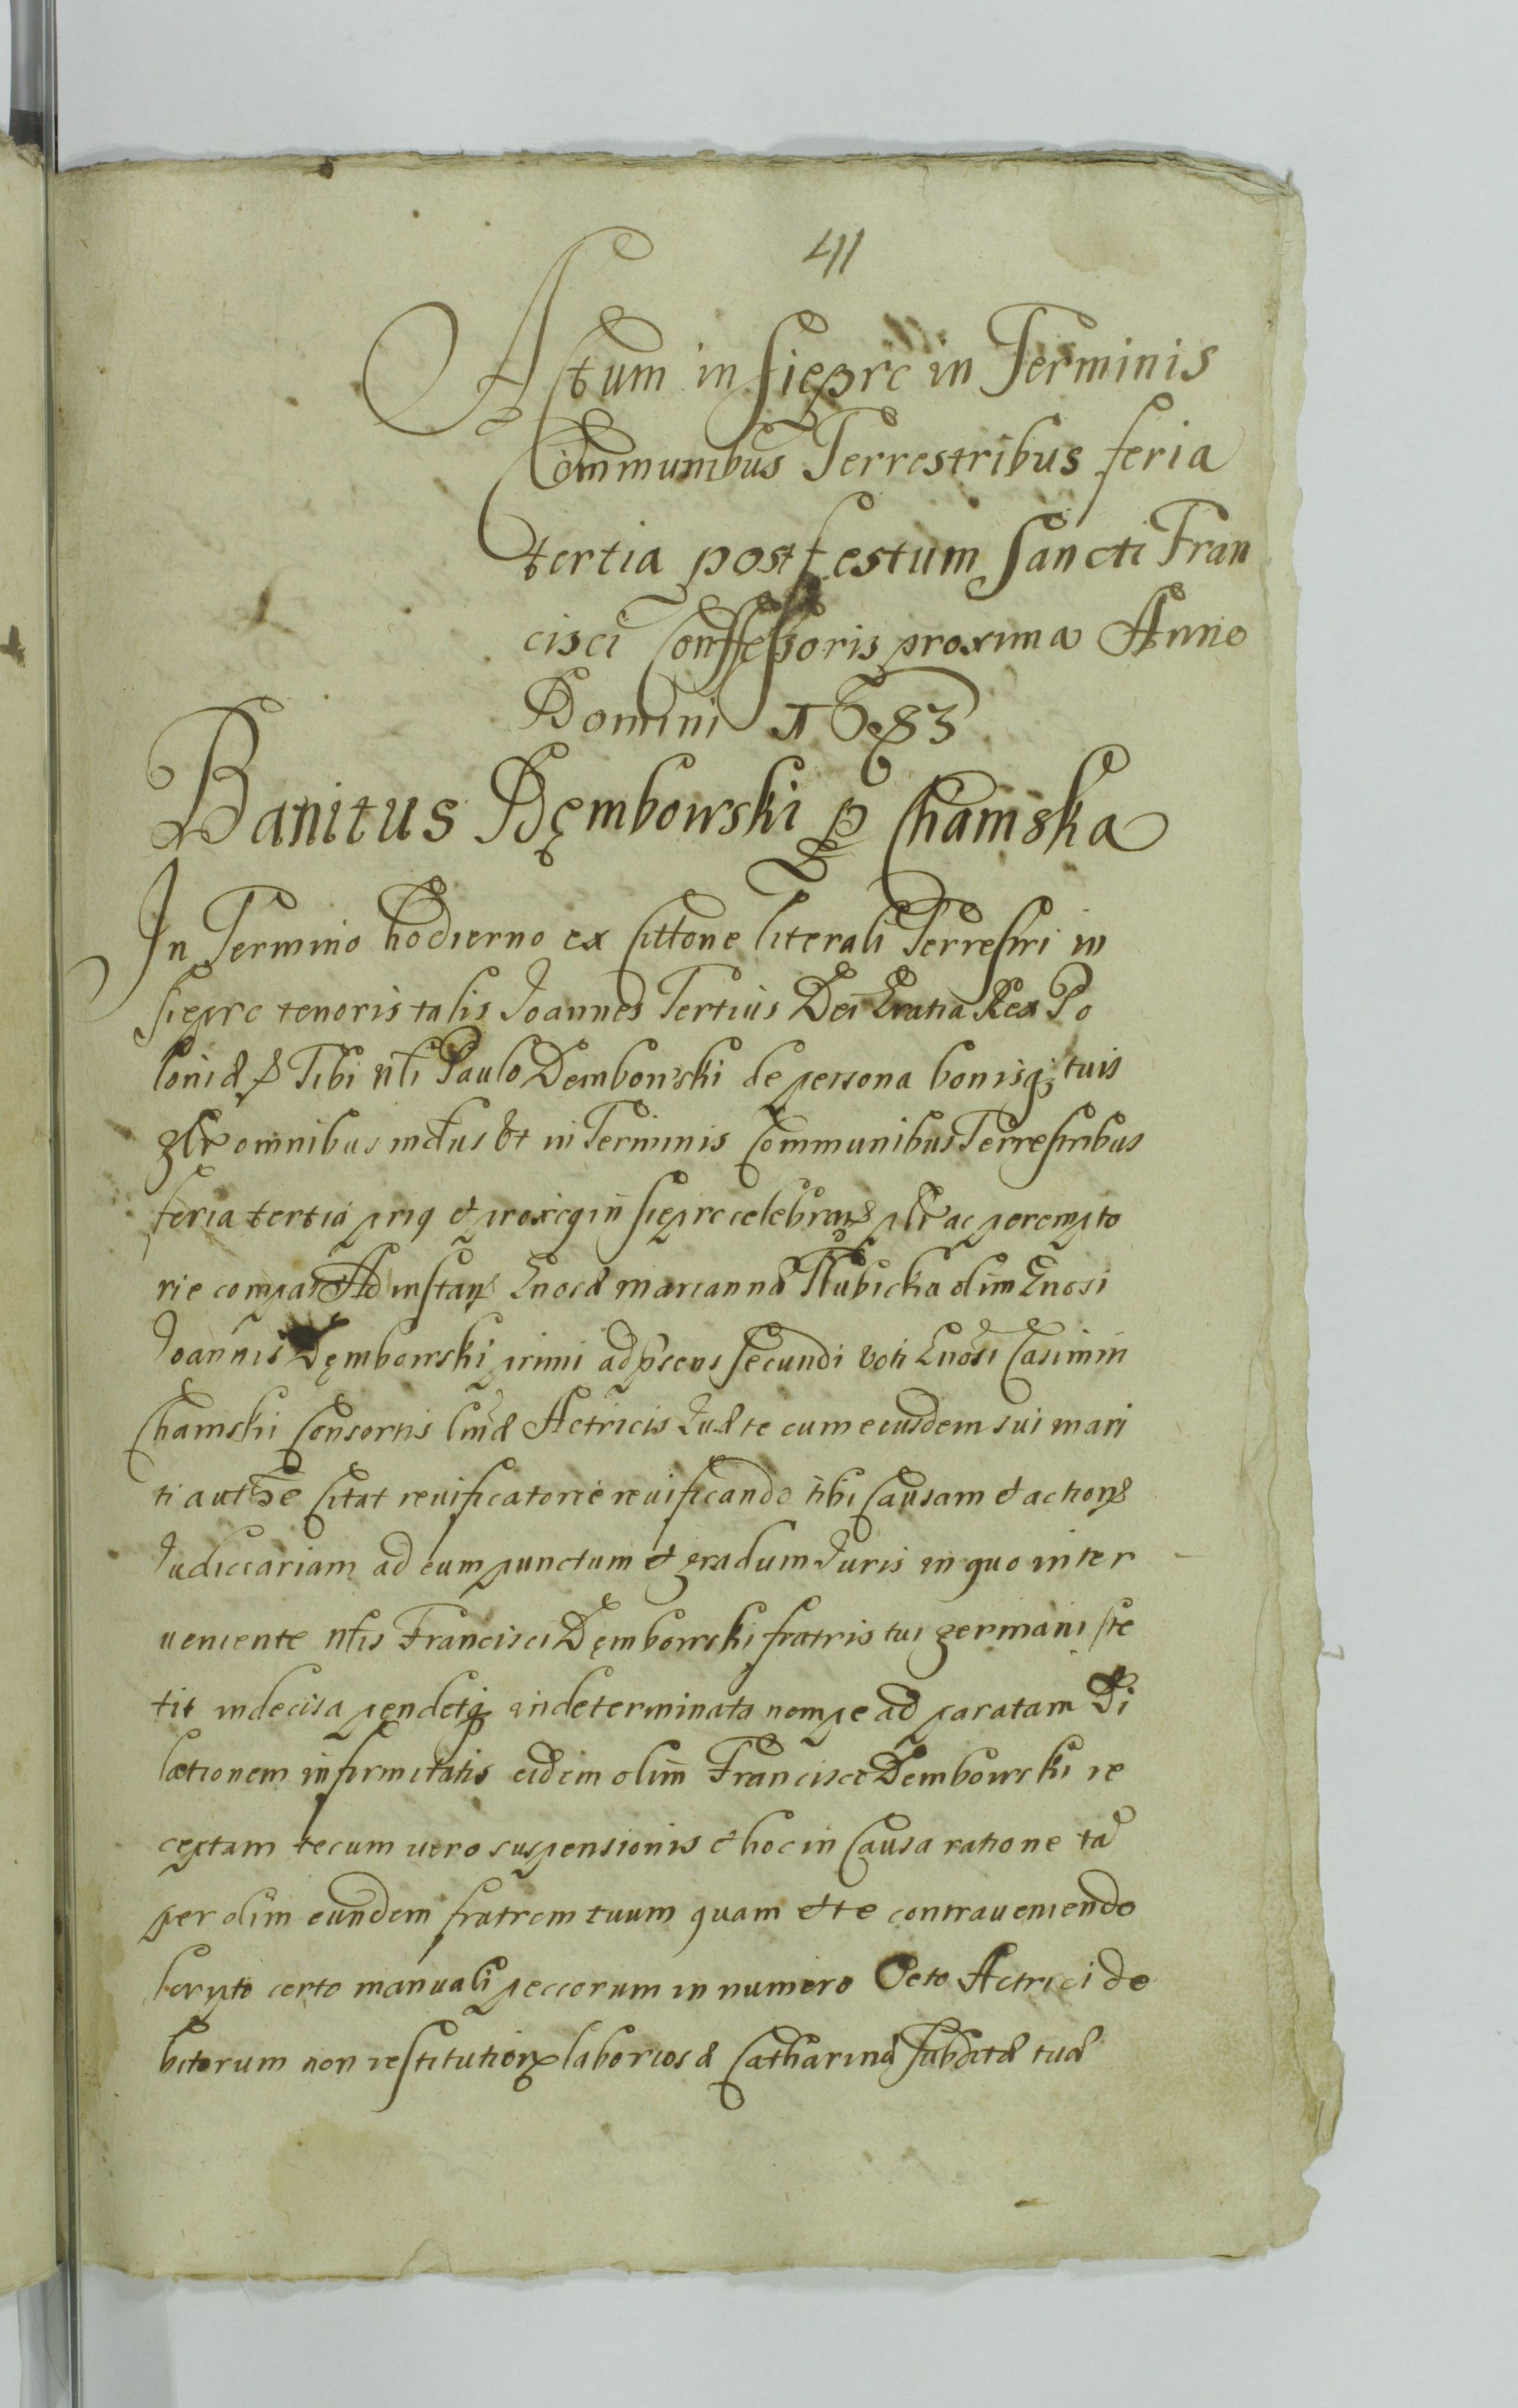 411
Actum in Sieprc in Terminis
Communibus Terrestribus feria
tertia post festum Sancti Fran
cisci Confessoris proxima Anno
Domini 1683
Banitus Dęmbowski p Chamska
In Termino hodierno ex Cittone literali Terrestri in
Sieprc tenoris talis Joannes Tertius Dei Gratia Rex Po
loniæ Tibi nli Paulo Dembowski de persona bonisq; tuis
glr omnibus mdus ut in Terminis Communibus Terrestribus
feria tertia priq et proxeq in Sieprc celebran plr ac perempto
rie compas Ad instan Gnosæ Mariannæ Tłubicka olim Gnosi
Joannis Dęmbowski primi ad psens secundi voti Gnosi Casimiri
Chamski Consortis Actricis te cum eiusdem sui mari
ti autthe Citat reuificatorie reuificando tibi Causam et action
Judiciariam ad eum punctum et gradum Juris in quo inter
ueniente nlis Francisci Dęmbowski fratris tui germani ste
tit indecisa pendetq indeterminata nempe ad paratam Di
lationem infirmitatis eidem olim Francisco Dembowski re
ceptam tecum uero suspensionis et hoc in Causa ratione ta
per olim eundem fratrem tuum quam et te contraueniendo
scripto certo manuali peccorum in numero Octo Actrici de
bitorum non restitution laboriosæ Catharinæ Subditæ tuæ